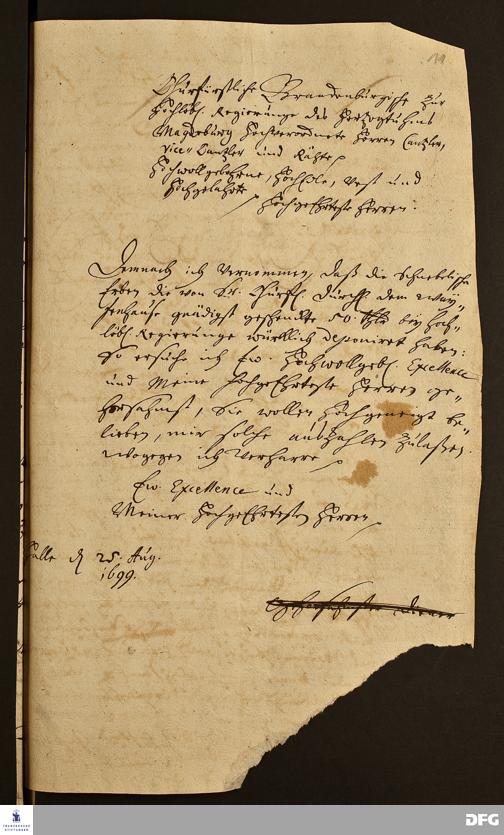 Churfürstliche Brandenburgische zur
hochlöbl. Regierunge des Hertzogtuhms
Magdeburg hochverordnete Herren Cantzler,
Vice-Cantzler und Rähte,
Hochwollgebohrne, HochEdle, Vest und
Hochgelahrte
HochgeEhrteste Herren:
Demnach ich vernommen, daß die Schnebelische
Erben die von Sr. Churfl. Durchl. dem Way-
senhause gnädigst geschenckte 50 thlr bey Hoch-
löbl. Regierunge würcklich deponiret haben:
So ersuche ich Ew. Hochwollgeb. Excellence
und Meine HochgeEhrteste Herren ge-
horsahmst, Sie wollen Hochgeneigt be-
lieben, mir solche auszahlen zulaßen.
Wogegen ich verharre
Ew. Excellence und
Meiner HochgeEhrtesten Herren
Halle d. 25. Aug.
1699.
FRANCKESCHE
STIFTUNGEN
DFG